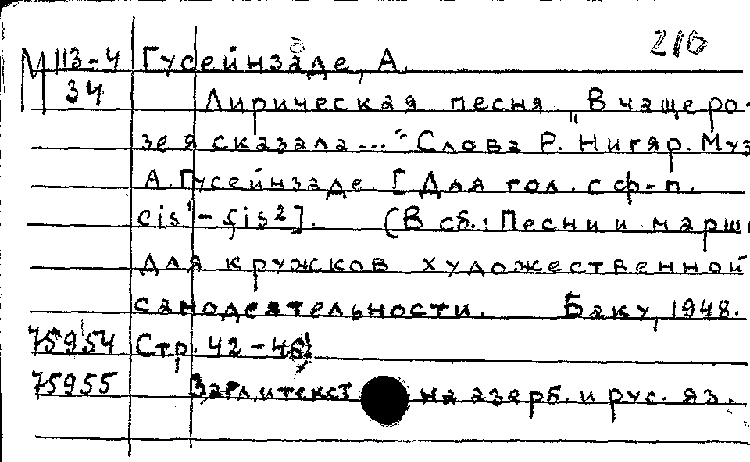 210
М 113-4 Гусейнзаде, А.
34 Лирическая песня „В чаще ро-
зе я сказала..." Слова Р. Нигяр. Муз
А. Гусейнзаде [Для гол. с ф-п.
cis¹ - gis²]. (В сб.: Песни и марши
для кружков художественной
самодеятельности. Баку, 1948.
75954 Стр. 42-46)
75955 Загл. и текст на азерб. и рус. яз.